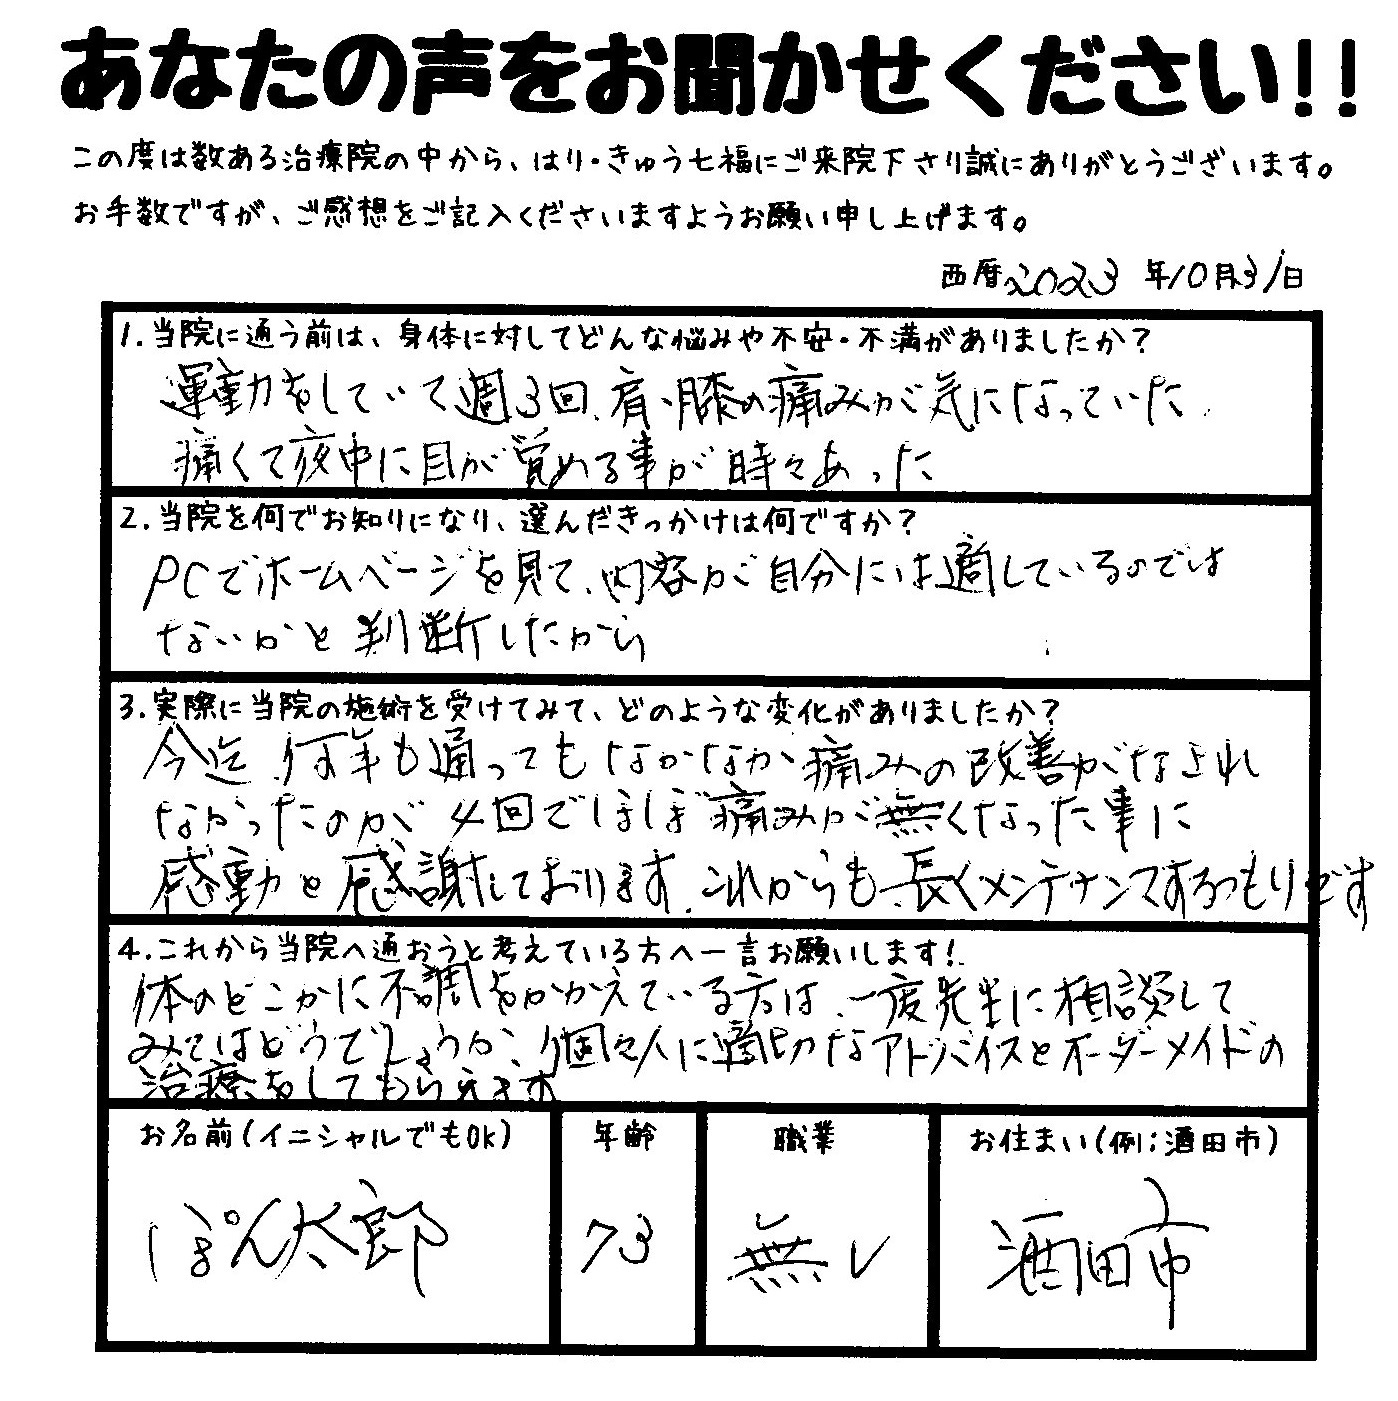 あなたの声をお聞かせください!!
この度は数ある治療院の中から、はり・きゅう七福にご来院下さり誠にありがとうございます。
お手数ですが、ご感想をご記入くださいますようお願い申し上げます。
西暦2023年10月31日
1.当院に通う前は、身体に対してどんな悩みや不安・不満がありましたか?
運動をしていて週3回、肩、膝の痛みが気になっていた.
痛くて夜中に目が覚める事が時々あった
2.当院を何でお知りになり、選んだきっかけは何ですか?
PCでホームページを見て、内容が自分には適しているのでは
ないかと判断したから
3.実際に当院の施術を受けてみて、どのような変化がありましたか?
今迄、何年も通ってもなかなか痛みの改善がなされ
なかったのが4回でほぼ痛みが無くなった事に
感動と感謝しております。これからも長くメンテナンスするつもりです
4.これから当院へ通おうと考えている方へ一言お願いします!
体のどこかに不調をかかえている方は、一度先生に相談して
みてはどうでしょうか、個々人に適切なアドバイスとオーダーメイドの
治療をしてもらえます
お名前(イニシャルでもOK)
年齢
職業
お住まい(例:酒田市)
ぽん太郎
73
無し
酒田市